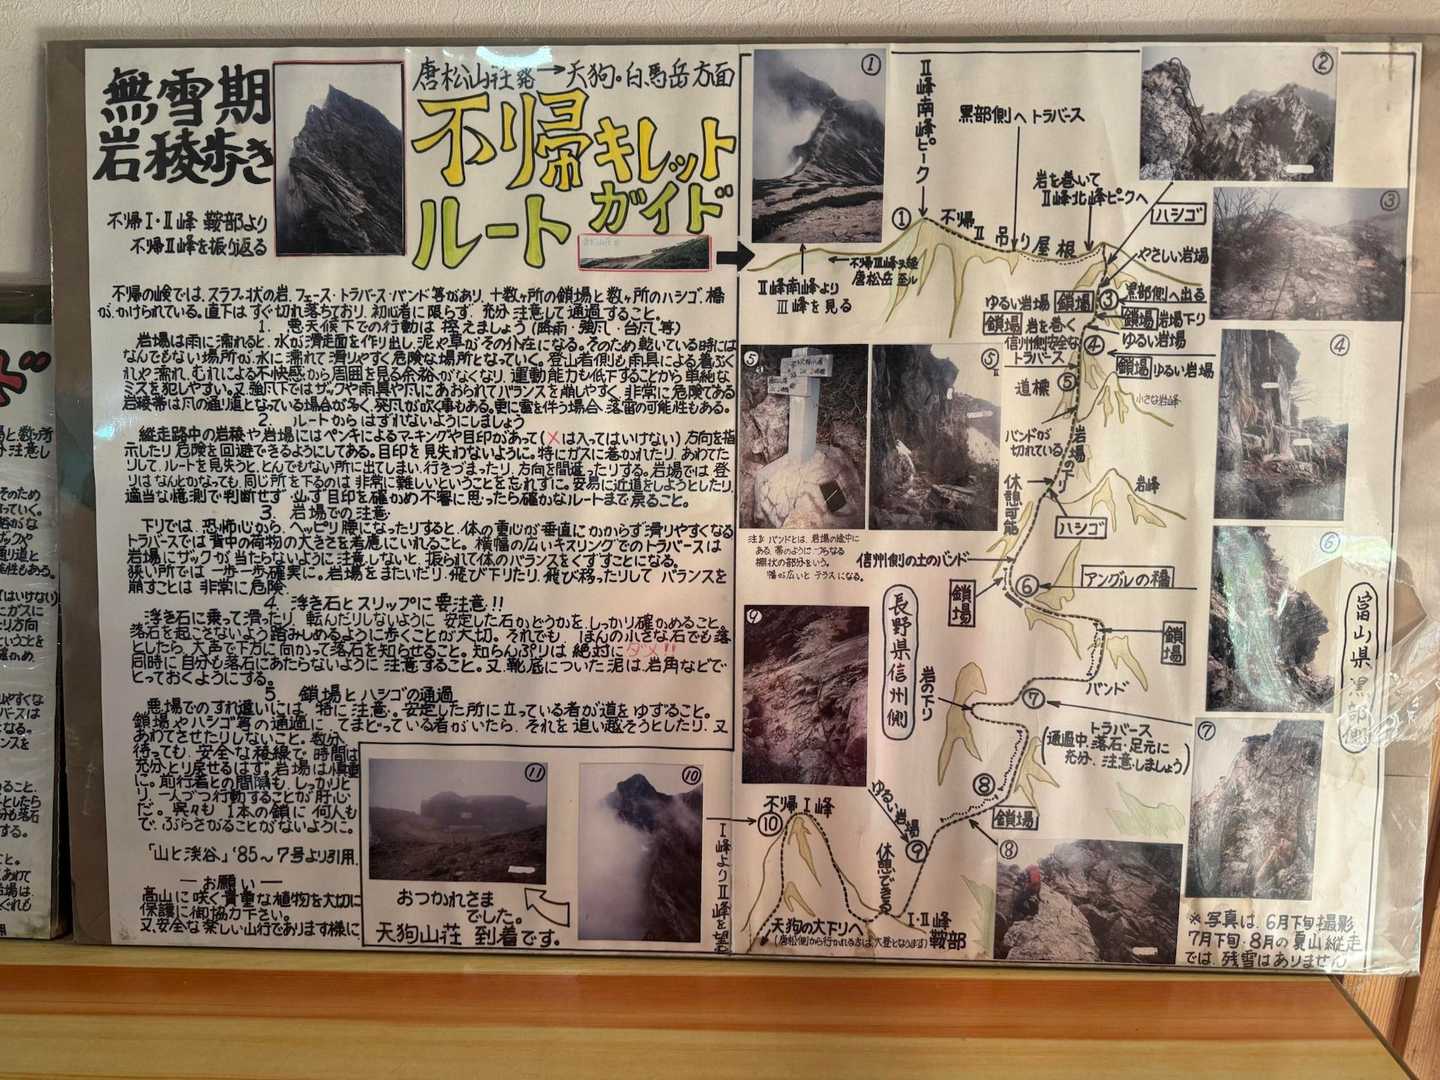 無雪期
岩稜歩き
不帰Ⅰ・Ⅱ峰 鞍部より
不帰Ⅱ峰を振り返る
唐松山荘発→天狗・白馬岳方面
不帰キレット
ルートガイド
不帰の嶮では、スラブ状の岩、フェース・トラバース・バンド等があり、十数ヶ所の鎖場と数ヶ所のハシゴ、橋
がかけられている。直下はすぐ切れ落ちており、初心者に限らず、充分注意して通過すること。
1. 悪天候下での行動は控えましょう(降雨・強風・台風等)
岩場は雨に濡れると、水が滑走面を作り出し、泥や草がその介在になる。そのため乾いている時には
なんでもない場所が、水に濡れて滑りやすく危険な場所となっていく。登山者側も雨具による着ぶく
れや濡れ、むれによる不快感から周囲を見る余裕がなくなり、運動能力も低下することから単純な
ミスを犯しやすい。又、強風下ではザックや雨具や爪にあおられてバランスを崩しやすく、非常に危険である
岩稜帯は風の通り道となっている場合が多く、突風が吹く事もある。更に雷を伴う場合、落雷の可能性もある。
2. ルートからはずれないようにしましょう
縦走路中の岩稜や岩場にはペンキによるマーキングや目印があって(×は入ってはいけない)方向を指
示したり危険を回避できるようにしてある。目印を見失わないように。特にガスに巻かれたり、あわてた
りして、ルートを見失うと、とんでもない所に出てしまい、行きづまったり、方向を間違ったりする。岩場では登
りはなんとかなっても、同じ所を下るのは非常に難しいということを忘れずに。安易に近道をしようとしたり、
適当な憶測で判断せず、必ず目印を確かめ不審に思ったら確かなルートまで戻ること。
3. 岩場での注意
下りでは、恐怖心から、ヘッピリ腰になったりすると、体の重心が垂直にかからず滑りやすくなる
トラバースでは背中の荷物の大きさを考慮にいれること。横幅の広いキスリングでのトラバースは
岩場にザックが当たらないように注意しないと、振られて体のバランスをくずすことになる。
狭い所では一歩一歩確実に。岩場をまたいだり、飛び下りたり、飛び移ったりして バランスを
崩すことは非常に危険。
4. 浮き石とスリップに要注意!!
浮き石に乗って滑ったり、転んだりしないように 安定した石かどうかを、しっかり確かめること。
落石を起こさないよう踏みしめるように歩くことが大切。それでも、ほんの小さな石でも落
としたら、大声で下方に向かって落石を知らせること。知らんぷりは絶対にダメ!!
同時に自分も落石にあたらないように注意すること。又、靴底についた泥は、岩角などで
とっておくようにする。
5. 鎖場とハシゴの通過
悪場でのすれ違いには、特に注意。安定した所に立っている者が道をゆずること。
鎖場やハシゴ等の通過に、てまどっている者がいたら、それを追い越そうとしたり、又
あわてさせたりしないこと。数分
待っても、安全な稜線で時間は
充分とり戻せるはず。岩場は慎重
に。前行者との間隔も、しっかりと
り、一人づつ行動することが肝心
だ。呉々も、1本の鎖に何人も
で、ぶらさがることがないように。
「山と渓谷」'85~7号より引用.
―お願い―
高山に咲く貴重な植物を大切に
保護に御協力下さい。
又、安全な楽しい山行であります様に
⑪
おつかれさま
でした。
天狗山荘 到着です。
⑩
Ⅰ峰よりⅡ峰を望む
①
Ⅱ峰南峰より
Ⅲ峰を見る
不帰Ⅲ峰を経
唐松岳 至ル
Ⅱ峰南峰ピーク
①
不帰Ⅱ吊り屋根
黒部側へトラバース
岩を巻いて
Ⅱ峰北峰ピークへ
②
ハシゴ
③
やさしい岩場
黒部側へ出る
ゆるい岩場
鎖場
③
鎖場
岩場下り
鎖場
岩を巻く
ゆるい岩場
信州側安全な
トラバース
④
鎖場
ゆるい岩場
④
道標
⑤
小さな岩峰
バンドが
切れている
岩場の下り
⑤
⑤
注意 バンドとは、岩場の途中に
ある、帯のように つらなる
棚状の部分をいう。
幅が広いと テラスになる。
休憩可能
岩峰
ハシゴ
信州側の土のバンド
⑥
アングルの橋
⑥
鎖場
鎖場
長野県信州側
富山県黒部側
岩の下り
バンド
⑦
トラバース
(通過中、落石・足元に
充分、注意・しましょう)
⑦
⑧
鎖場
⑧
⑨
ゆるい岩場
⑨
休憩できる
不帰Ⅰ峰
⑩
天狗の大下りへ
(唐松側から行かれる方は、大登となります)
Ⅰ・Ⅱ峰
鞍部
※写真は、6月下旬撮影
7月下旬・8月の夏山縦走
では、残雪はありません